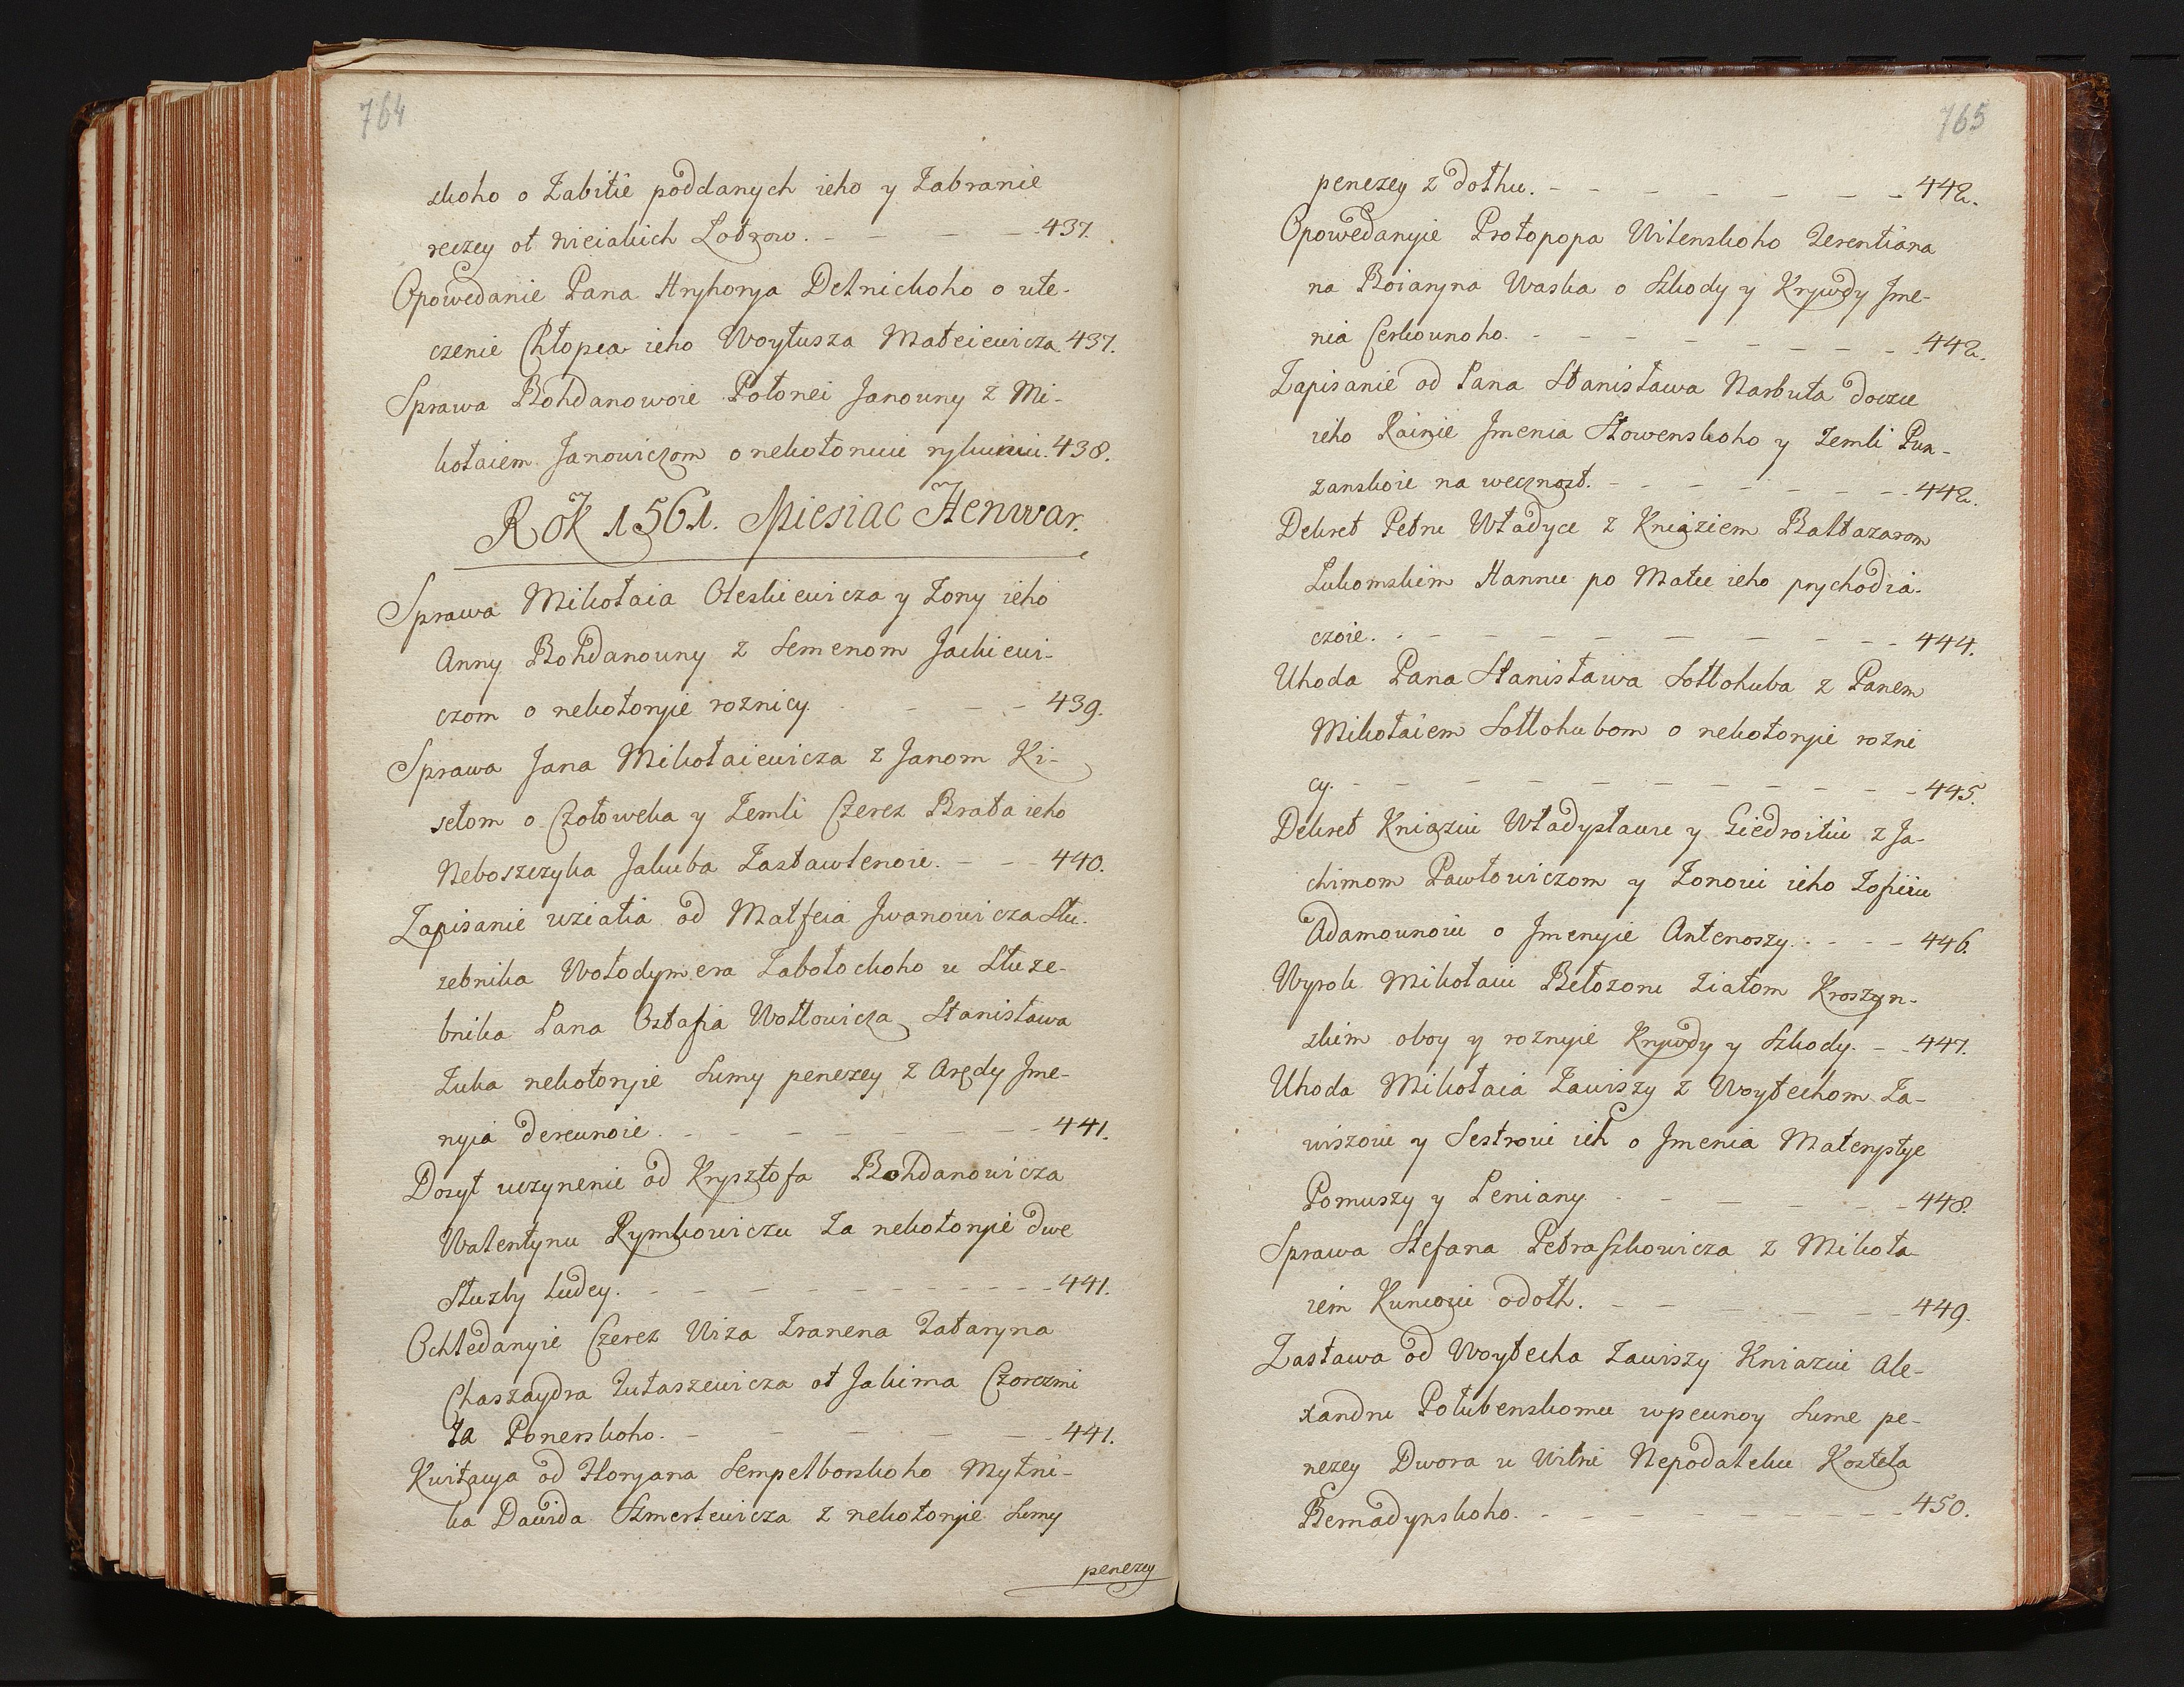 764
skoho o Zabitie poddanych ieho y Zabranie
reczey ot nieiakich Łotrow. 437.
Opowedanie Pana Hryhorya Delnickoho o ute-
czenie Chłopca ieho Woytusza Mateiewicza. 437.
Sprawa Bohdanowoie Połonei Janouny z Mi-
kołaiem Janowiczom o nekotoruiu 438.
Rok 1561. Miesiac Henwar.
Sprawa Mikołaia Oleskiewicza y Zony ieho
Anny Bohdanouny z Semenom Jackiewi-
czom o nekotoryie roznicy. 439.
Sprawa Jana Mikołaiewicza z Janom Ki-
sełom o Człoweka y Zemli Czerez Brata ieho
Neboszczyka Jakuba Zastawlenoie. 440.
Zapisanie uziatia od Matfeia Jwanowicza Słu-
zebnika Wołodymera Zabołockoho u Słuze-
bnika Pana Ostafia Wołłowicza Stanisława
Zuka nekotoryie Sumy penezey z Arędy Jme-
nyia derewnoie. 441.
Dosyt uczynenie od Krysztofa Bohdanowicza
Walentynu Rymkowiczu Za nekotoryie dwe
Słuzby ludey. 441.
Ochledanyie Czerez Wiza Zranena Tataryna
Chaszaydra Tutaszewicza ot Jakima Czorczmi
Za Ponerskoho. 441.
Kwitacya od Floryana Sempelborskoho Mytni-
ka Dawida Szmerlewicza z nekotoryie Sumy
penezey
765
penezey z dołhu. 442.
Opowedanyie Protopopa Witenskoho Terentiana
na Boiaryna Waska o Szkody y Krywdy Jme-
nia Cerkounoho. 442.
Zapisanie od Pana Stanisława Narbuta doczce
ieho Rainie Jmenia Słowenskoho y Zemli Pun-
zanskoie na wecznost. 442.
Dekret Petru Władyce z Kniaziem Baltazarom
Lukomskim Hannu po Matce ieho prychodia-
czoie. 444.
Uhoda Pana Stanisława Sołłohuba z Panem
Mikołaiem Sołłohubom o nekotoryie rozni
cy. 445.
Dekret Kniaziu Władysławu y Giedroitiu z Ja-
chimom Pawłowiczom y Zonoiu ieho Zofiiu
Adamounoiu o Jmenyie Antenoszy. 446.
Wyrok Mikołaiu Bełozoru Ziatom Kroszyn-
skim oboy y roznyie Krywdy y Szkody. 447.
Uhoda Mikołaia Zawiszy z Woytechom Za-
wiszoiu y Sestroiu ich o Jmenia Materystye
Pomuszy y Leniany. 448.
Sprawa Stefana Petraszkowicza z Mikoła-
iem odołh. 449.
Zastawa od Woytecha Zawiszy Kniaziu Ale-
xandru Połubenskomu wpewnoy Sume pe-
nezey Dwora u Wilni Nepodaleku Kosteła
Bernadynskoho. 450.